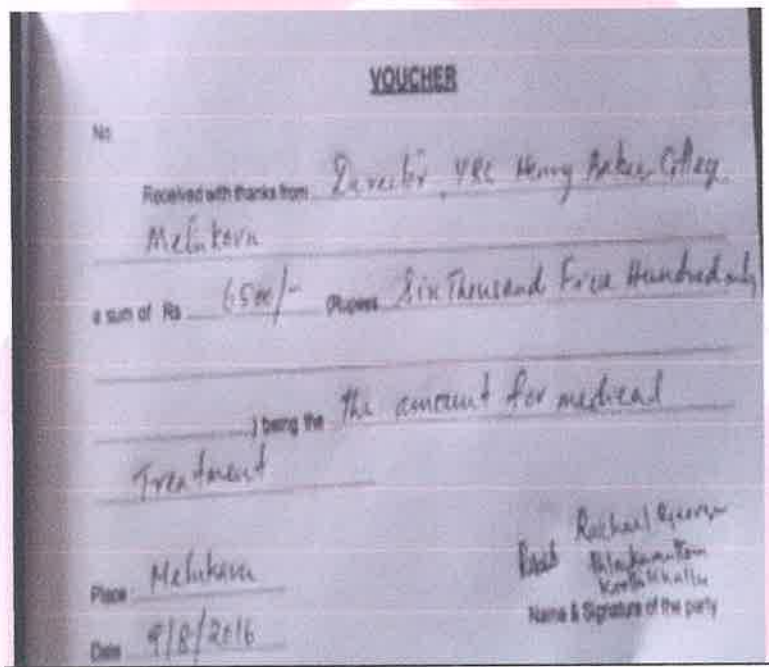 VOUCHER
No
Received with thanks from Director, YRC Henry Baker College
Melukavu
a sum of Rs 6500/- (Rupees Six Thousand Five Hundred only
) being the the amount for medical
Treatment
Rachael George
Place Melukavu
Name & Signature of the party
Date 9/8/2016